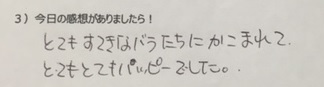 3）今日の感想がありましたら！
とてもすてきなバラたちにかこまれて、
とてもとてもハッピーでした。